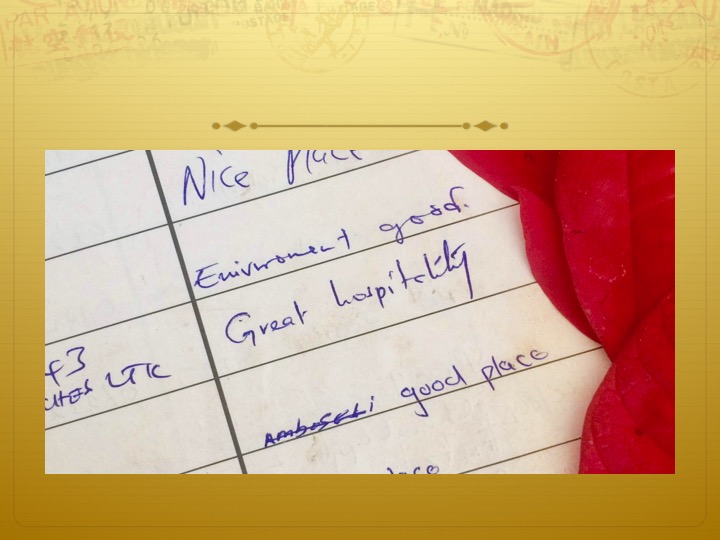 Nice Place
Enivroment good.
Great hospitality
+3
UTC
Amboseli good place